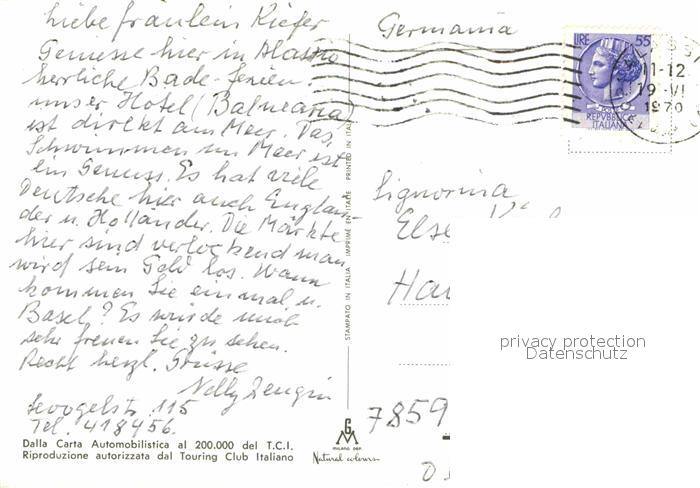 Liebe Fräulein Kiefer
Geniesse hier in Alassio
herrliche Bade-ferien.
unser Hotel (Balnearia)
ist direkt am Meer. Das
Schwimmen im Meer ist
ein Genuss. Es hat viele
Deutsche hier auch Englän-
der u. Holländer. Die Märkte
hier sind verlockend man
wird sein Geld los. Wann
kommen Sie einmal n.
Basel? Es würde mich
sehr freuen Sie zu sehen.
Recht herzl. Grüsse
Nelly Zengin
Sevogelstr. 115
Tel. 418456.
Dalla Carta Automobilistica al 200.000 del T.C.I.
Riproduzione autorizzata dal Touring Club Italiano
STAMPATO IN ITALIA IMPRIMÉ EN ITALIE PRINTED IN ITALY
GM
MILANO DEP.
Natural colours
Germania
LIRE 55
REPVBBLICA
ITALIANA
11-12
19 VI
1970
Signorina
Else
Ha
7859
privacy protection
Datenschutz